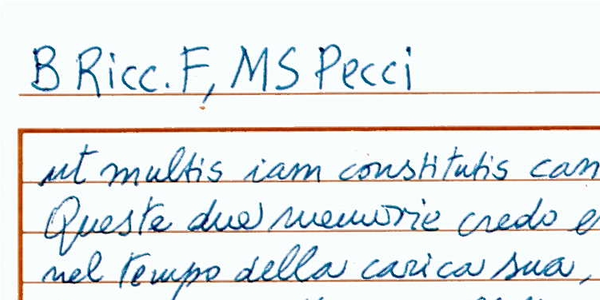 B Ricc. F, MS Pecci
ut multis iam constitutis can
Queste due memorie credo e
nel tempo della carica sua,